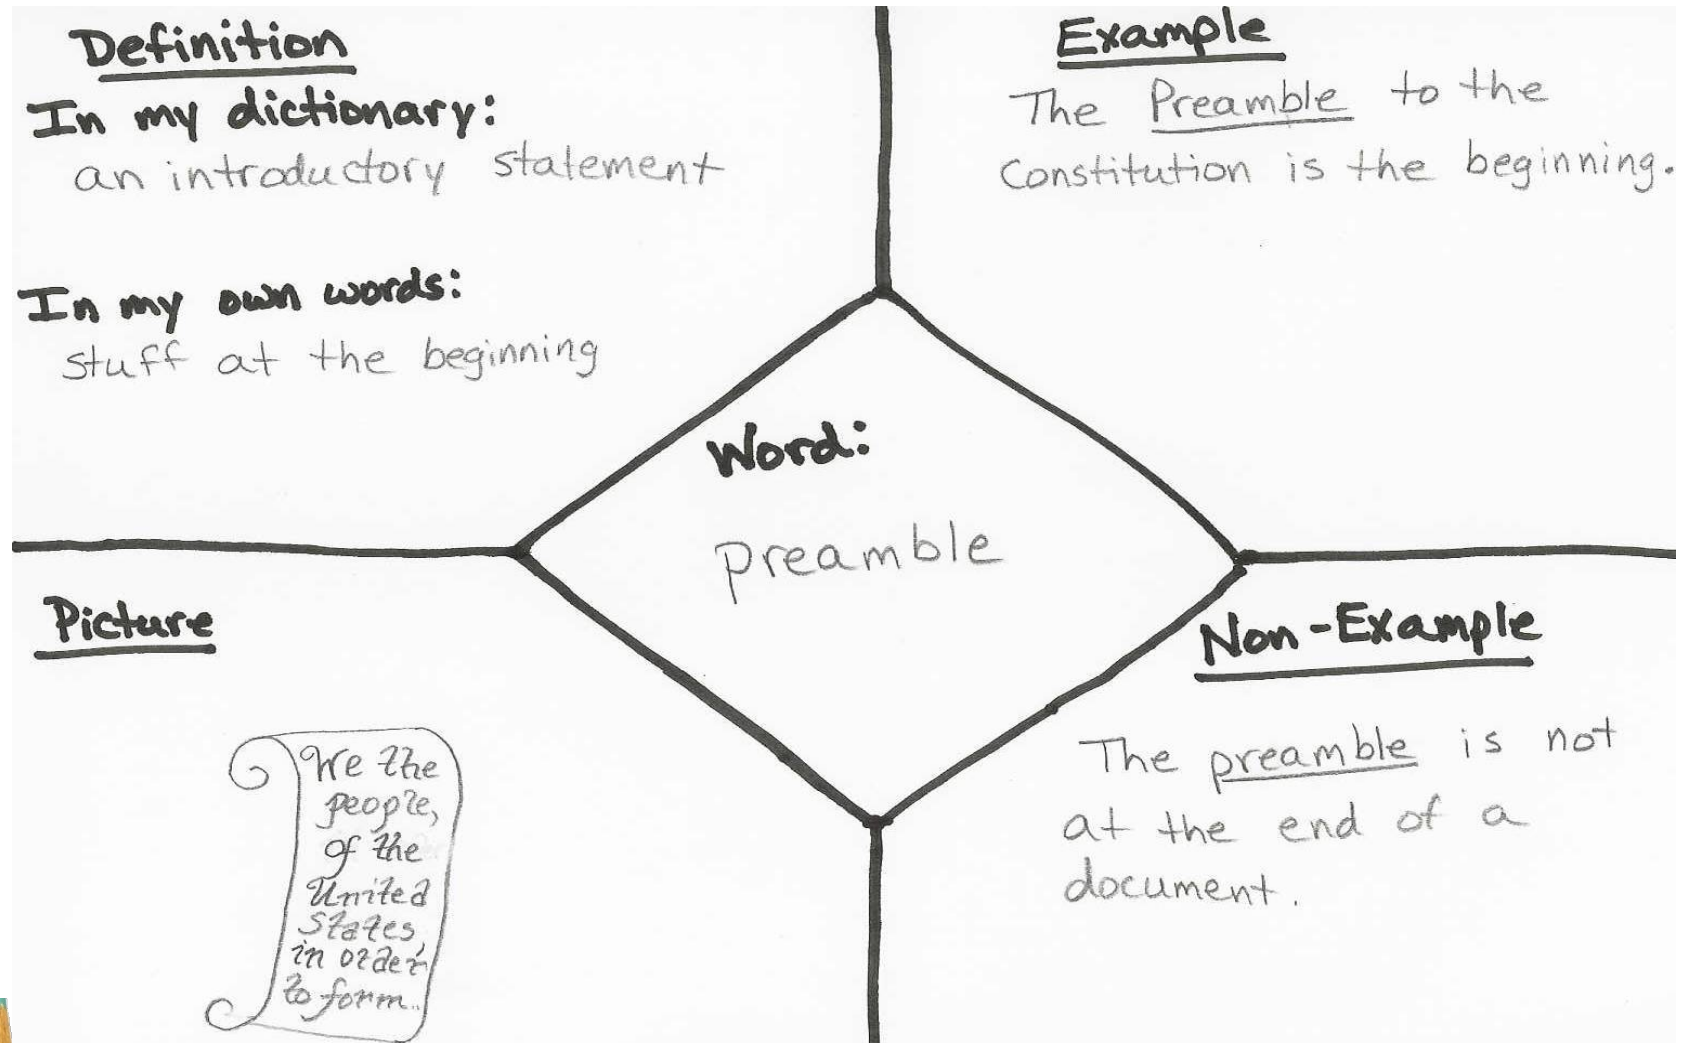 Definition
In my dictionary:
an introductory statement
In my own words:
stuff at the beginning
Example
The Preamble to the
Constitution is the beginning.
Word:
preamble
Picture
We the
people,
of the
United
States,
in order
to form...
Non-Example
The preamble is not
at the end of a
document.